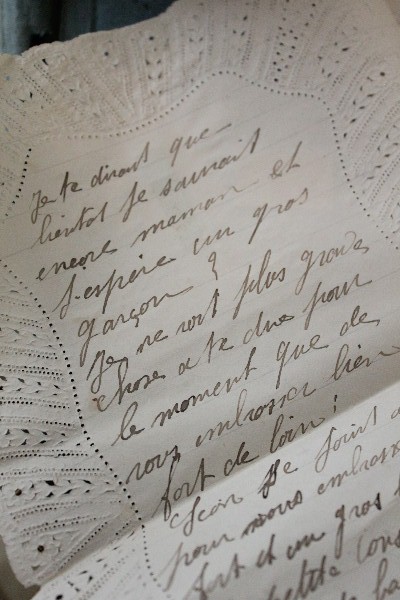 Je te dirais que
bientot je saurait
encore maman et
J'espère un gros
garçon ?
Je ne voit plus grande
chose a te dire pour
le moment que de
vous embrasser bien
fort de loin ;
Jean se joint a
pour vous embrass
fort et un gros
petite
de